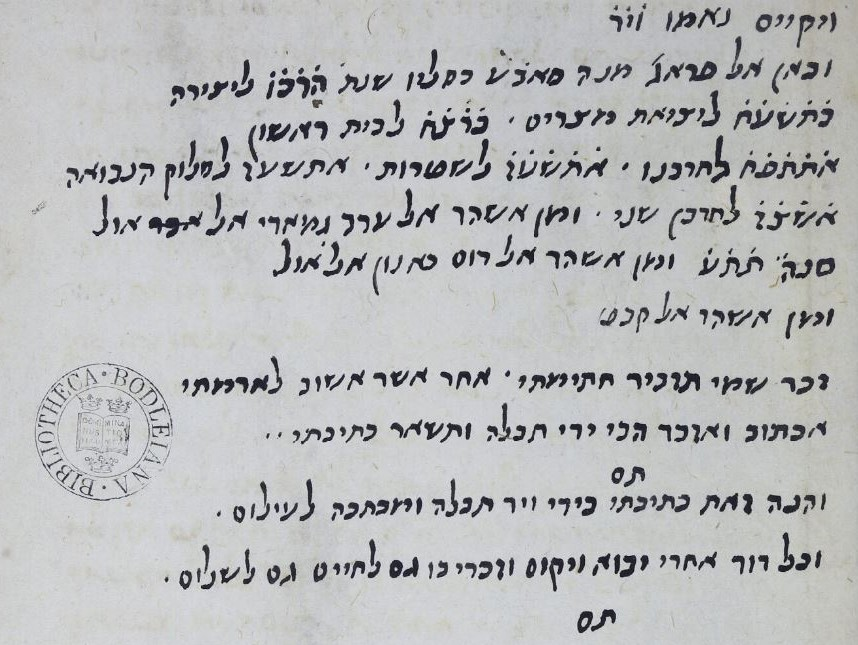 ויקויים נאמו וי֗ר֗
וכאן אל פראג׳ מנה סאבע כסליו שנת הרכו ליצירה
בתשעה ליציאת מצרים · לבית ראשון
לחרבנו · לשטרות · אתשעג לסלוק הנבואה
לחרבן שני · ומן אשהר אל ערב גמארי אל אול
סנה׳ תתע ומן אשהר אל רום כאנון אל אול
ומן אשהר אל קבט
זכר שמי תזכיר חתימתי · אחר אשר אשוב לאדמתי
אכתוב ואזכר הכי ידי תבלה ותשאר כתיבתי ··
תם
והנה זאת כתיבתי בידי ויד תבלה ומכתבה לעילום ·
וכל דור אחרי יבוא ויקום וזכרי בו גם לחיים גם לשלום ·
תם
BIBLIOTHECA · BODLEIANA ·